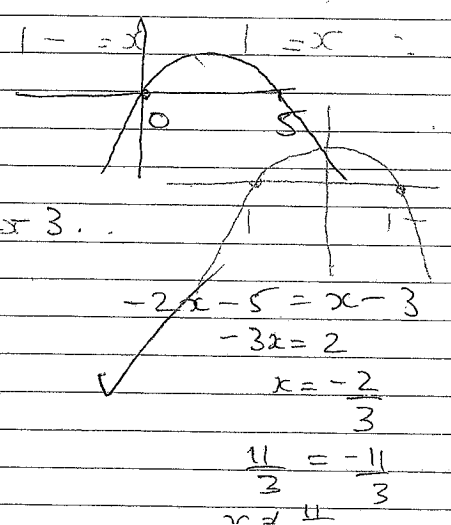 1 - = x 1 = x :
0 5
1 1 -
x - 3 . .
-2x - 5 = x - 3
-3x = 2
x = -2/3
11/3 = -11/3
x ≠ 11